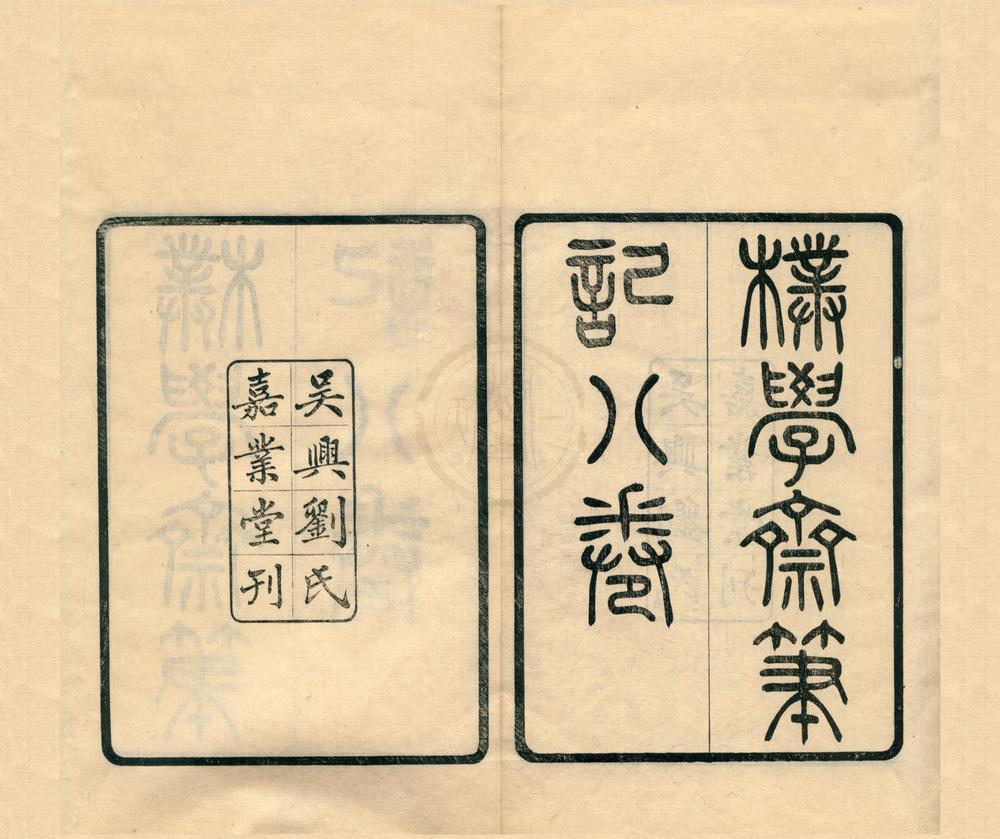 樸學齋筆
記八卷
吴興劉氏
嘉業堂刊